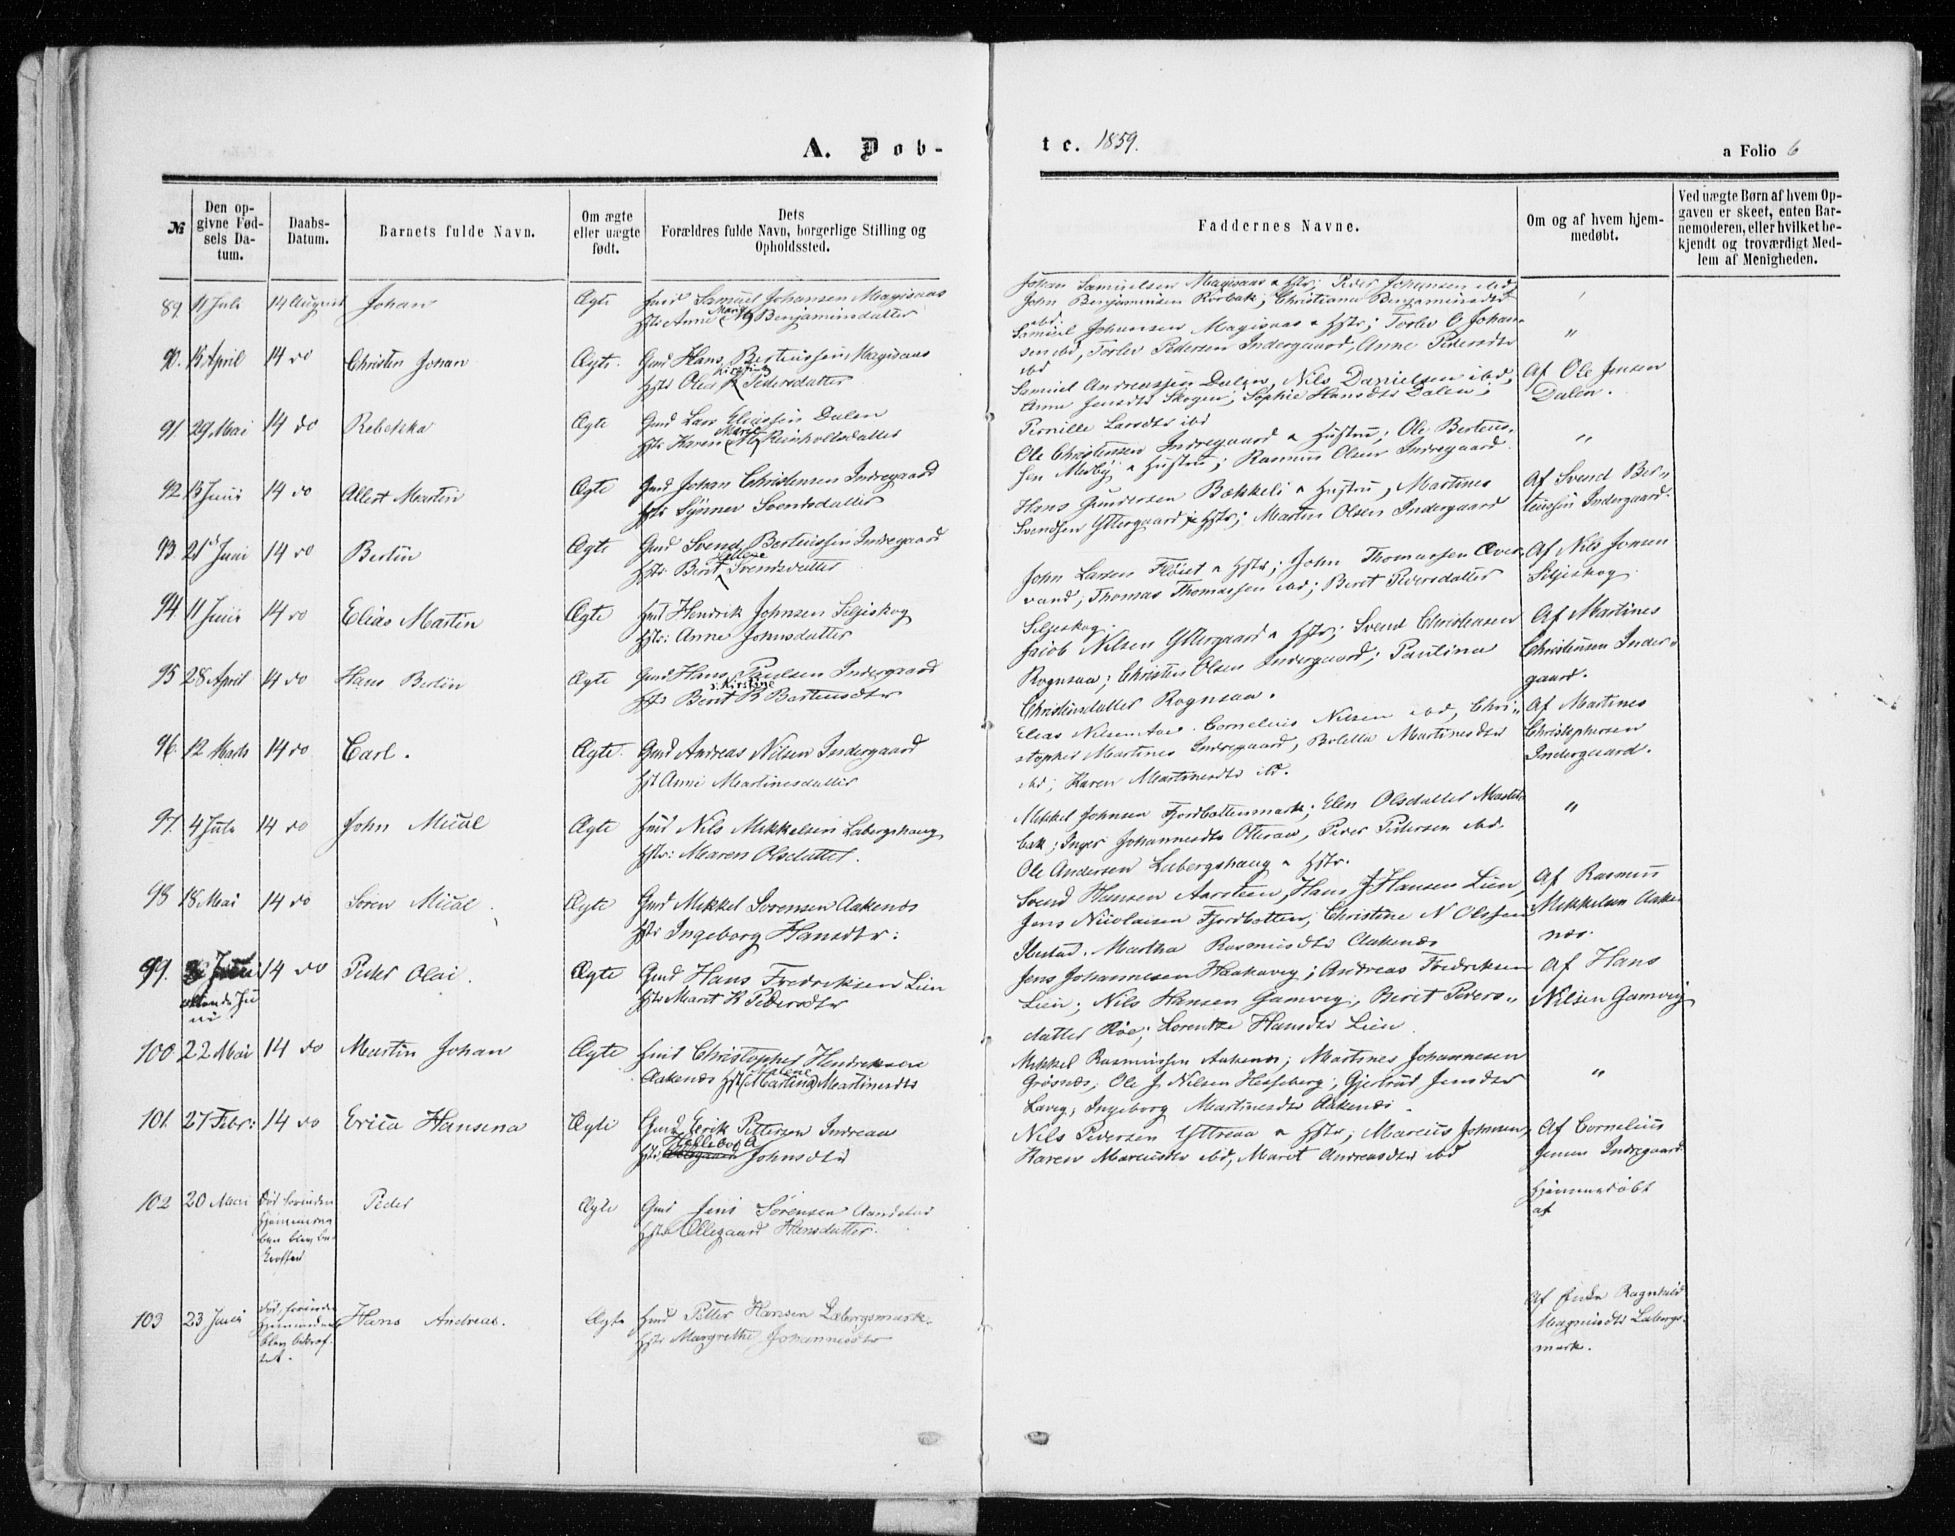 A. Dob-
t e. 1859.
a Folio 6
№
Den op-
givne Fød-
sels Da-
tum.
Daabs-
Datum.
Barnets fulde Navn.
Om ægte
eller uægte
født.
Dets
Forældres fulde Navn, borgerlige Stilling og
Opholdssted.
Faddernes Navne.
Om og af hvem hjem-
medøbt.
Ved uægte Børn af hvem Op-
gaven er skeet, enten Bar-
nemoderen, eller hvilket be-
kjendt og troværdigt Med-
lem af Menigheden.
89. 11 Juli 14 August Johan Ægte Samuel Johansen Magisaas
Hstr Anne Marg Benjaminsdatter
Johan Samuelsen Magisaas Hstr; Peder Johansen ibd;
John Benjaminsen Rörbak; Christiana Benjaminsdtr
ibd.
90. 15 April 14 do Christen Johan Ægte. Gmd Hans Berteussen Magisaas
Kirstine
Hstr Olea K Pedersdatter
Samuel Johansen Magisaas Hstr; Torlev O Johan-
sen ibd, Torlev Pedersen Indergaard, Anne Pedersdtr
ibd
91. 29 Mai 14 do Rebekka Ægte Gmd Lars Eliassen Dalen
Marie
Hstr Karen Reinholtsdatter
Samuel Andreassen Dalen, Nils Danielsen ibd,
Anne Jensdtr Skogen, Sophie Hansdtr Dalen;
Pernille Larsdtr ibd
Af Ole Jensen
Dalen.
92. 13 Juni 14 do Albert Martin Ægte Gmd Johan Christensen Indregaard
Hstr Synnev Svendsdatter
Ole Christensen Indregaard Hustru; Ole Berteus-
sen Medby Hustru; Rasmus Olsen Indregaard
"
93 21 Juni 14 do Bertin Ægte Gmd Svend Berteussen Indregaard
Hstr Berit Svendsdatter
Hans Gundersen Bækkeli Hustru, Martines
Svendsen Yttergaard Hstr; Martin Olsen Indergaard
Af Svend Ber-
teussen Indergaard.
94. 11 Juni 14 do Elias Martin Ægte Hendrik Johnsen Siljeskog
Hstr: Anne Johnsdatter
John Larsen Fløiet Hstr; John Thomassen Øver-
vand; Thomas Thomassen ibd; Beret Pedersdatter
Siljeskog.
Af Nils Jonsen
Siljeskog
95 28 April 14 do Hans Bertin Ægte Gmd Hans Paulsen Indergaard
Kirstine
Hstr Berit K Berteusdtr
Jacob Nilsen Yttergaard Hstr; Svend Christensen
Rognsaa; Christen Olsen Indergaard; Paulina
Christensdatter Rognsaa.
Af Martines
Christensen Inder-
gaard.
96. 12 Marts 14 do Carl. Ægte. Gmd Andreas Nilsen Indergaard
Hst Anne Martinesdatter
Elias Nilsen Aae. Cornelius Nilsen ibd, Chri-
stopher Martines Indregaard, Boletta Martinesdtr
ibd; Karen Martinesdtr ibd.
Af Martines
Christophersen
Indergaard.
97. 4 Juli 14 do John Mical Ægte Nils Mikkelsen Labergshaug
Hstr: Maren Olsdatter.
Mikkel Johnsen Fjordbottenmark; Elen Olsdatter
bak; Inger Johannesdtr Otteraa, Peder Pedersen ibd.
Ole Andersen Labergshaug Hstr.
"
98 18 Mai 14 do Sören Mical Ægte Gmd Mikkel Sorensen Aakenæs
Hstr Ingeborg Hansdtr:
Svend Hansen Aarsteen, Hans J Hansen Lien,
Jens Nicolaisen Fjordbotten, Christine N Olsen
Ilustad. Martha Rasmusdtr Aakenæs
Af Rasmus
Mikkelsen Aake-
næs.
99. Juni 14 do Peder Olai. Ægte Gmd Hans Fredriksen Lien
ottende Ju
ni Hstr Marit K Pedersdtr
Jens Johannesen Haakavig; Andreas Fredriksen
Lien; Nils Hansen Gamvig, Berit Peders-
datter Röe; Lorentze Hansdtr Lien
Af Hans
Nilsen Gamvig
100 22 Mai 14 do Martin Johan Ægte Christopher Hendriksen
Malene
Aakenæs Hst (Martina) Martinesdtr
Mikkel Rasmussen Aakenæs; Martines Johannesen
Grösnes; Ole J. Nilsen Hesseberg; Gjertrud Jensdtr
Lavig; Ingeborg Martinesdtr Aakenæs.
"
101. 27 Febr: 14 do Erica Hansena Ægte Gmd Erik Pettersen Indreaa
Hellebor A
Hstr Johnsdtr
Nils Pedersen Yttreaa Hstr; Marcus Johnsen,
Karen Marcusdtr ibd, Maret Andreasdtr ibd
Af Cornelius
Jensen Indregaard.
102 20 Mai Död forinden
Hjemmedaa
ben blev be
kræftet Peder Ægte Gmd Jens Sörensen Aandstad
Hstr Ollegaard Hansdatter.
Hjemmedöbt
af
103 23 Juni Död forinden
Hjemmedaaben
blev bekræf-
tet. Hans Andreas. Ægte Petter Hansen Labergsmark.
Hstr Margrethe Johannesdtr
Af Enke Ragnhild
Magnusdtr Labergs-
mark.